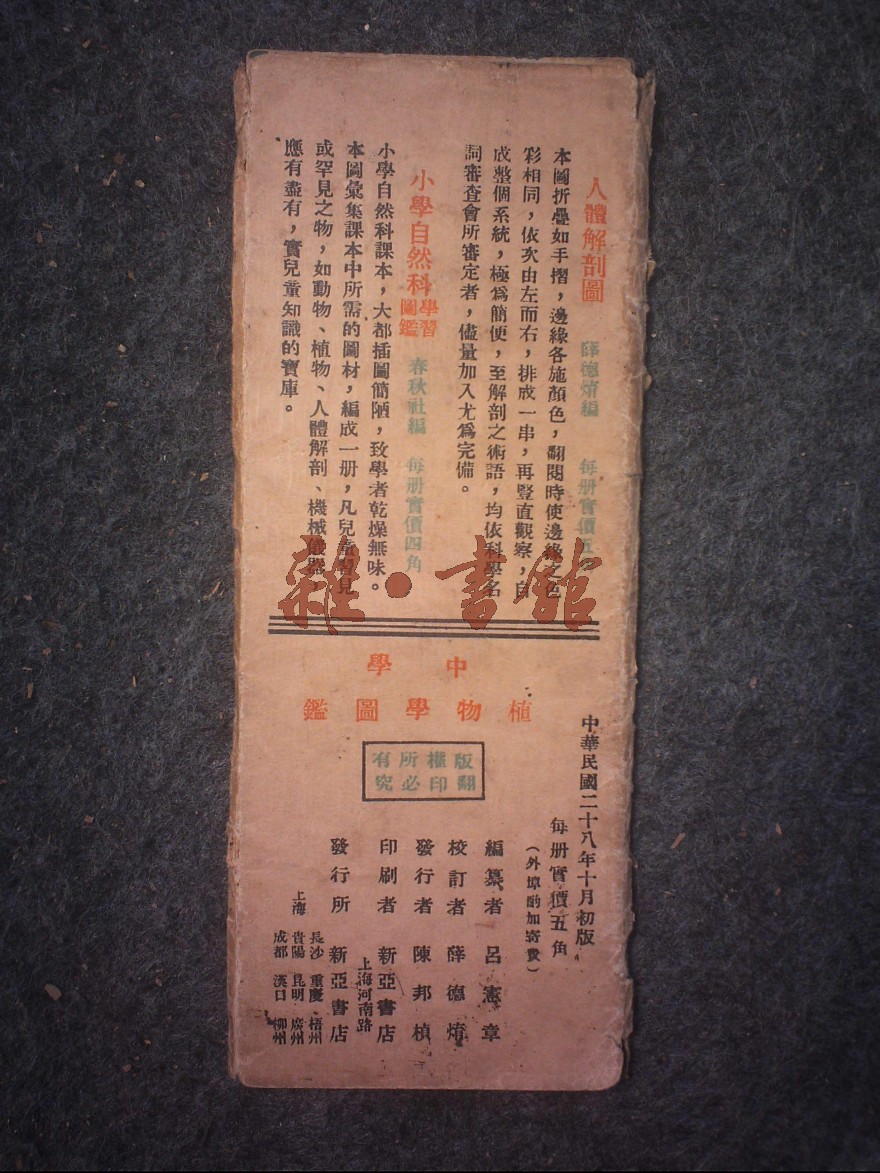 人體解剖圖　薛德焴編　每册實價五
本圖折疊如手摺，邊緣各施顏色，翻閱時使邊緣之色
彩相同，依次由左而右，排成一串，再豎直觀察，自
成整個系統，極爲簡便，至解剖之術語，均依科學名
詞審查會所審定者，儘量加入尤爲完備。
小學自然科學習圖鑑　春秋社編　每册實價四角
小學自然科課本，大都插圖簡陋，致學者乾燥無味。
本圖彙集課本中所需的圖材，編成一册，凡兒童習見
或罕見之物，如動物、植物、人體解剖、機械儀器、
應有盡有，實兒童知識的寶庫。
雜·書館
中學
植物學圖鑑
版權所有
翻印必究
中華民國二十八年十月初版
每册實價五角
（外埠酌加寄費）
編纂者　呂憲章
校訂者　薛德焴
發行者　陳邦楨
印刷者　新亞書店
上海河南路
發行所　新亞書店
長沙　重慶　梧州
上海　貴陽　昆明　廣州
成都　漢口　柳州